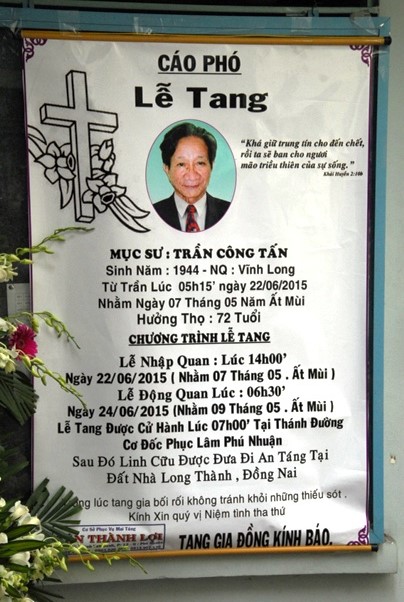 CÁO PHÓ
Lễ Tang
"Khá giữ trung tín cho đến chết,
rồi ta sẽ ban cho ngươi
mão triều thiên của sự sống."
Khải Huyền 2:10b
MỤC SƯ : TRẦN CÔNG TẤN
Sinh Năm : 1944 - NQ : Vĩnh Long
Từ Trần Lúc 05h15' ngày 22/06/2015
Nhằm Ngày 07 Tháng 05 Năm Ất Mùi
Hưởng Thọ : 72 Tuổi
CHƯƠNG TRÌNH LỄ TANG
Lễ Nhập Quan : Lúc 14h00'
Ngày 22/06/2015 ( Nhằm 07 Tháng 05 . Ất Mùi )
Lễ Động Quan Lúc : 06h30'
Ngày 24/06/2015 (Nhằm 09 Tháng 05 . Ất Mùi )
Lễ Tang Được Cử Hành Lúc 07h00' Tại Thánh Đường
Cơ Đốc Phục Lâm Phú Nhuận
Sau Đó Linh Cữu Được Đưa Đi An Táng Tại
Đất Nhà Long Thành , Đồng Nai
lúc tang gia bối rối không tránh khỏi những thiếu sót .
Kính Xin quý vị Niệm tình tha thứ
Cơ Sở Phục Vụ Mai Táng
THÀNH LỢI
TANG GIA ĐỒNG KÍNH BÁO.